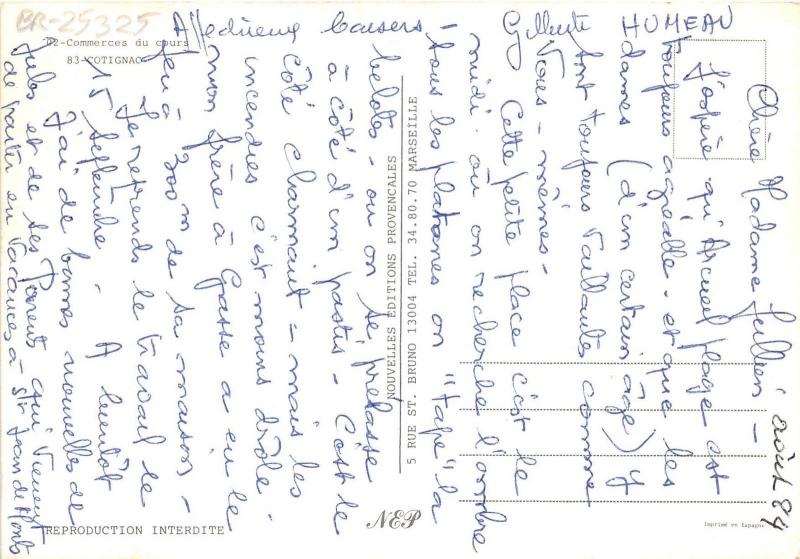 BR-25325
02-Commerces du cours
83-COTIGNAC
août 84
Chère Madame Jullien -
J'espère qu'Arcueil plage est
toujours agréable - et que les
dames (d'un certain âge) y
sont toujours vaillantes comme
vous-mêmes -
Cette petite place c'est le
midi où on recherche l'ombre
- tous les platanes on "tape" la
belote - ou on se prélasse
à côté d'un pastis - C'est le
côté charmant = mais les
incendies c'est moins drôle -
mon frère à Grasse a eu le
feu à 300 m de sa maison -
Je reprends le travail le
15 septembre - A bientôt
J'ai de bonnes nouvelles de
Jules et de ses Parents qui viennent
de partir en vacances à St Jean de Monts
Affectueux baisers -
HUMEAU
NOUVELLES EDITIONS PROVENCALES
5 RUE ST. BRUNO 13004 TEL. 34.80.70 MARSEILLE
NEP
REPRODUCTION INTERDITE
Imprimé en Espagne